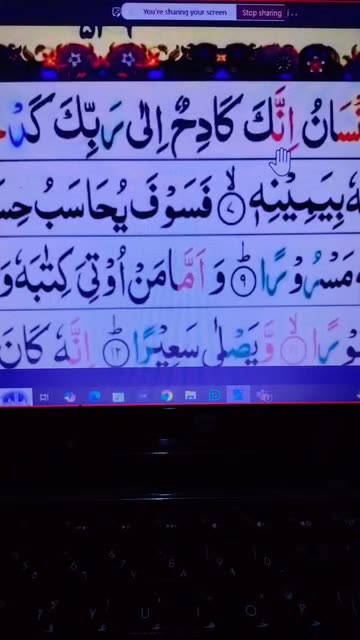 You're sharing your screen Stop sharing
۵۳۹
نْسَانُ اِنَّكَ كَادِحٌ اِلٰى رَبِّكَ كَدْ
هٗ بِيَمِيْنِهٖ ۙ ۷ فَسَوْفَ يُحَاسَبُ حِسَ
مَسْرُوْرًا ؕ ۹ وَ اَمَّا مَنْ اُوْتِىَ كِتٰبَهٗ وَ
وْرًا ۙ ۱۱ وَّ يَصْلٰى سَعِيْرًا ؕ ۱۲ اِنَّهٗ كَانَ
Y U I O P